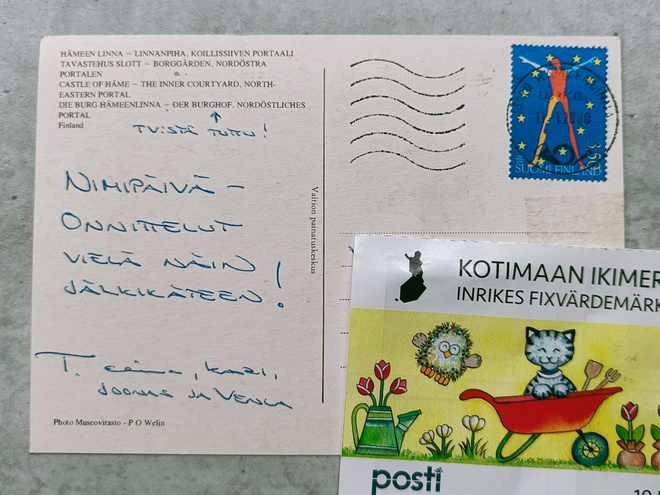 HÄMEEN LINNA – LINNANPIHA, KOILLISSIIVEN PORTAALI
TAVASTEHUS SLOTT – BORGGÅRDEN, NORDÖSTRA
PORTALEN
CASTLE OF HÄME – THE INNER COURTYARD, NORTH-
EASTERN PORTAL
DIE BURG HÄMEENLINNA – DER BURGHOF, NORDÖSTLICHES
PORTAL
Finland
TV:STÄ TUTU!
NIMIPÄIVÄ-
ONNITTELUT
VIELÄ NÄIN
JÄLKIKÄTEEN!
T. , KARI,
JOONAS JA VENLA
Photo Museovirasto - P O Welin
Valtion painatuskeskus
SUOMI FINLAND
3,50
KOTIMAAN IKIMER
INRIKES FIXVÄRDEMÄRK
posti